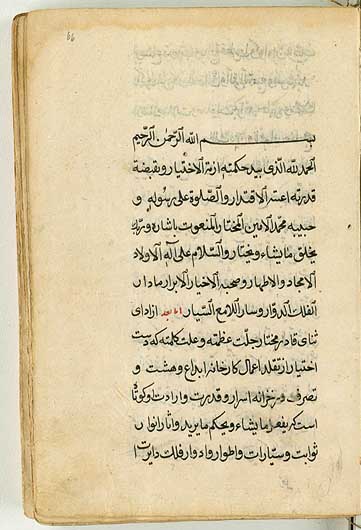 66
بسم الله الرحمن الرحيم
الحمد لله الذی بید حکمته ازمة الاختیار و بقبضة
قدرته اعنة الاقتدار و الصلوة علی رسوله و
حبیبه محمد الامین المختار المنعوت باشارة و ربک
یخلق ما یشاء و یختار و السلام علی آله الاولاد
الامجاد و الاطهار و صحبه الاخیار الابرار مادار
الفلک الدوار و سار اللامع السیار اما بعد از ادای
ثنای قادر مختار جلت عظمته و علت کلمته که دست
اختیار از تقلد اعمال کارخانه ابداع و هشت و
تصرف در خزانه اسرار قدرت و ارادت او کوتاه
است که یفعل ما یشاء و یحکم ما یرید و آثار انوار
ثوابت و سیارات و اطوار و ادوار فلک دایرات